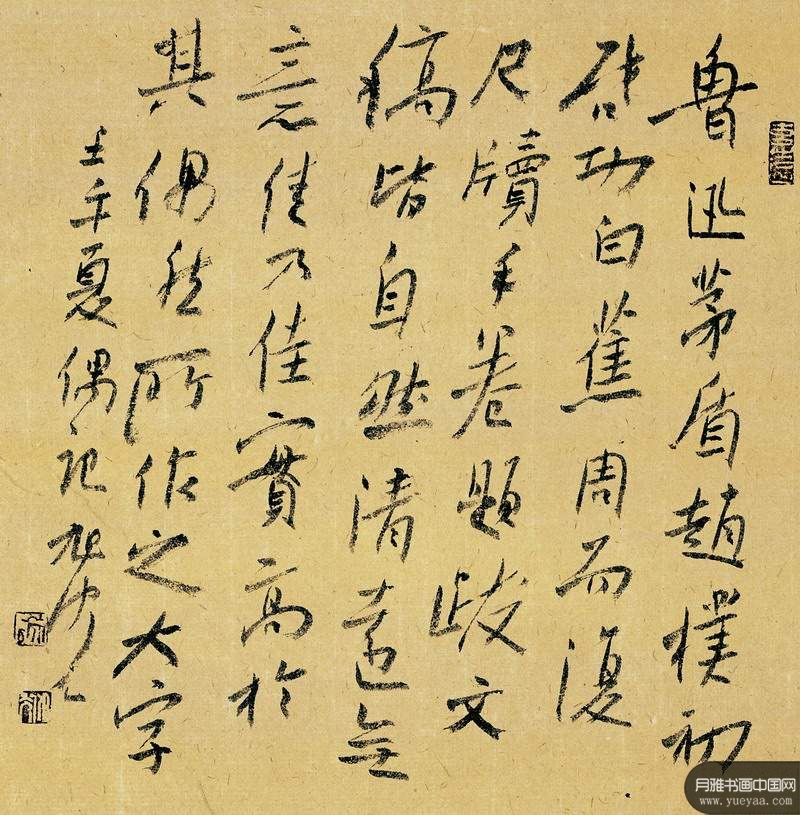 魯迅茅盾趙樸初
啟功白蕉周而復
尺牘手卷題跋文
稿皆自然清遠無
意佳乃佳實高於
其偶然所作之大字
壬午夏偶記
月雅书画中国网
www.yueyaa.com